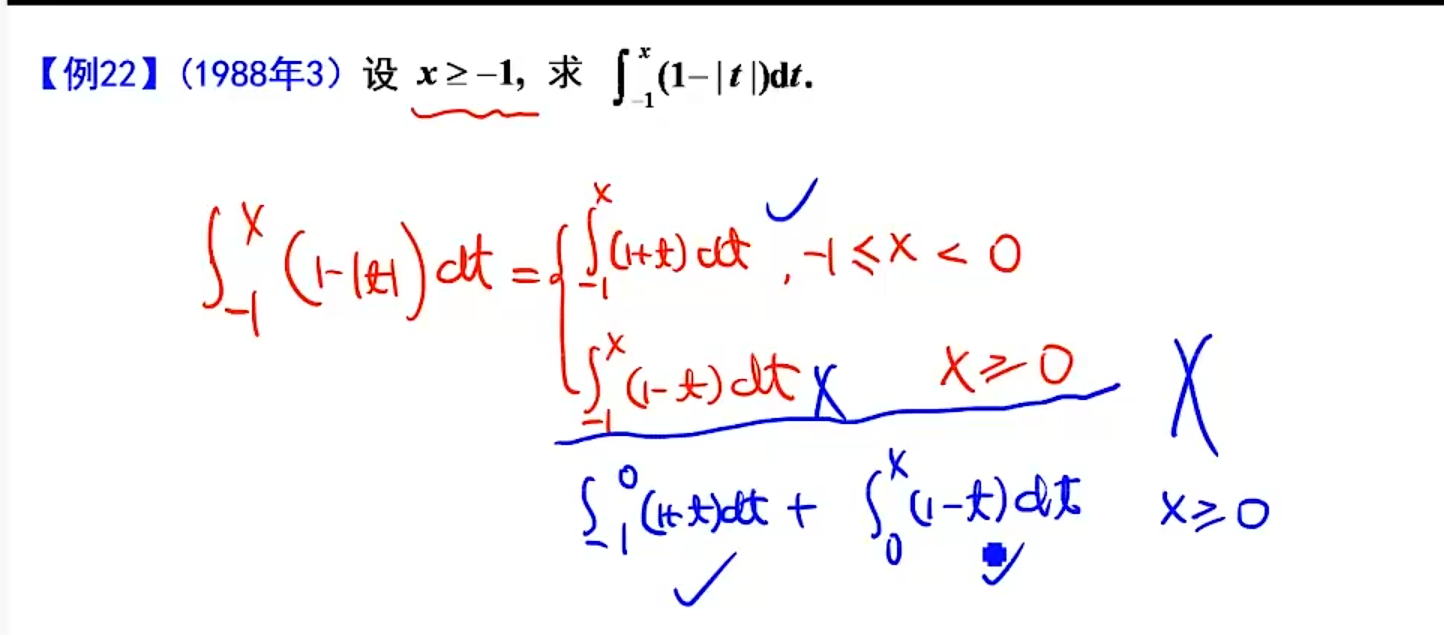 【例22】(1988年3) 设 x ≥ −1, 求 ∫_{−1}^{x} (1−|t|)dt.
∫_{−1}^{x} (1−|t|) dt = { ∫_{−1}^{x} (1+t) dt ✓ , −1 ≤ x < 0
∫_{−1}^{x} (1−t) dt ✗ x ≥ 0 ✗
∫_{−1}^{0} (1+t)dt + ∫_{0}^{x} (1−t)dt x ≥ 0
✓ ✓